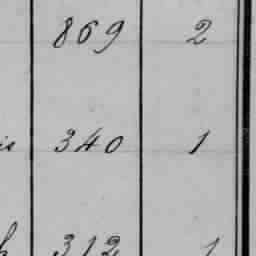 869 2
is 340 1
h 312 1